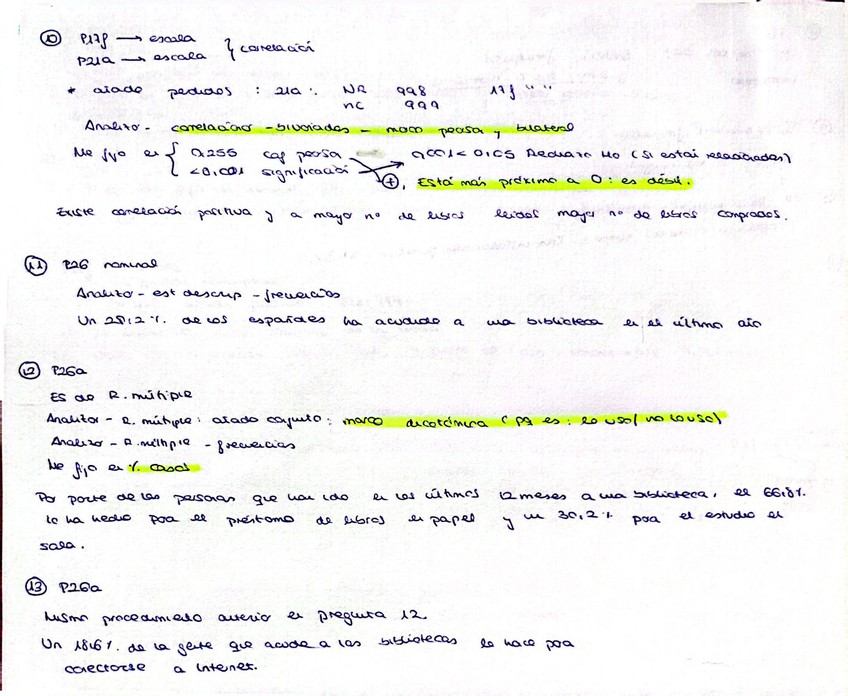 ⑩ P17f → escala
P21a → escala } correlación
* añado perdidos : 21a : NR 998 17f " "
NC 999
Analizo - correlación - bivariadas - marco pearson y bilateral
Me fijo en { 0,255 coef pearson 0,001 < 0,05 Rechazo H0 (Si están relacionadas)
<0,001 significación ⊕, Está más próximo a 0 : es débil.
Existe correlación positiva y a mayor nº de libros leídos mayor nº de libros comprados.
⑪ P26 nominal
Analizo - est descrip - frecuencias
Un 25,2 %. de los españoles ha acudido a una biblioteca en el último año
⑫ P26a
Es de R. múltiple
Analizar - R. múltiple : añado conjunto : marco dicotómica ( pq es : lo uso / no lo uso)
Analizo - R. múltiple - frecuencias
Me fijo en % casos
Por parte de las personas que han ido en los últimos 12 meses a una biblioteca, el 66,8%
lo ha hecho por el préstamo de libros en papel y un 30,2 % por el estudio en
sala.
⑬ P26a
Mismo procedimiento anterior en pregunta 12.
Un 18,6 %. de la gente que acude a las bibliotecas lo hace por
conectarse a Internet.